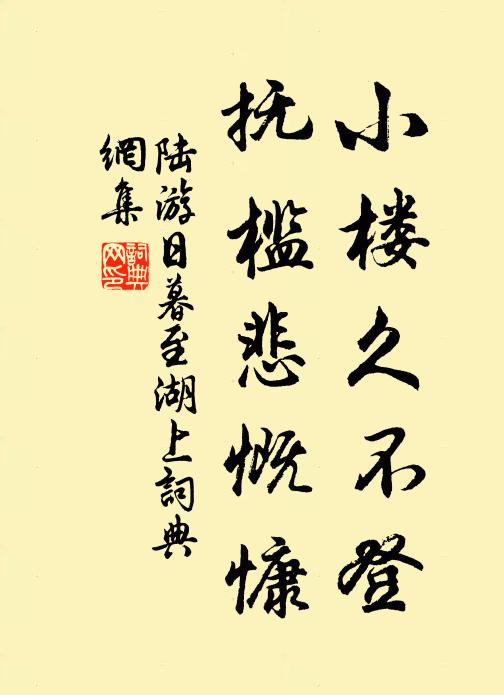 小楼久不登
抚槛悲慨慷
陆游日暮至湖上詞典
網集
詞典
网印